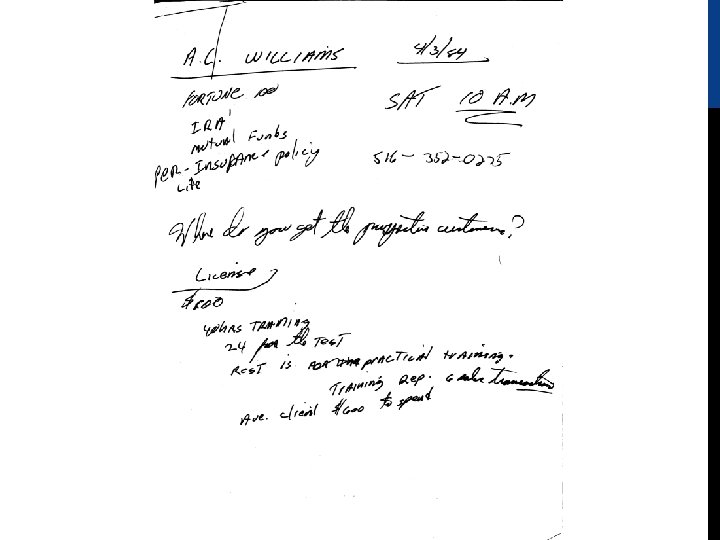 A.C. WILLIAMS 4/3/84
FORTUNE 100 SAT 10 A.M
IRA'
MUTUAL FUNDS
PER - INSURANCE policy 516-352-0225
Life
Where do you get the prospective customers?
License
$600
40HRS TRAINING
24 for the TEST
REST is FOR practical training.
TRAINING Rep. 6 sales transactions
Ave. client $600 to spend